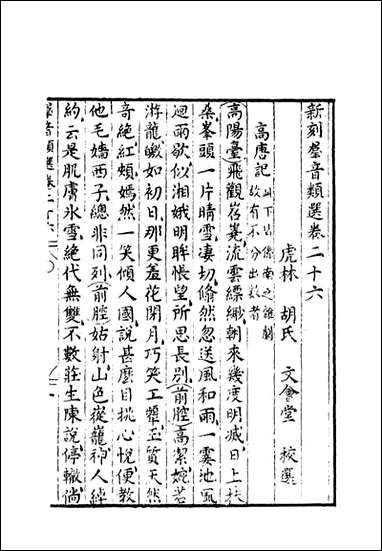 新刻羣音類選卷二十六
虎林 胡氏 文會堂 校選
高唐記 此下皆係南之雜劇
故有不分出數者
高陽臺飛觀岧嶤流雲縹緲朝來幾度明滅日上扶
桑峯頭一片晴雪凄切翛然忽送風和雨一霎池風
迴雨歇似湘娥明眸悵望所思長別前腔高潔婉若
游龍皦如初日那更羞花閉月巧笑工顰玉質天然
奇絕紅頰嫣然一笑傾人國說甚麼目挑心悅便教
他毛嬙西子總非同列前腔姑射山色嵸巃神人綽
約云是肌膚氷雪絕代無雙不數莊生陳說停轍倘
羣音類選卷二十六